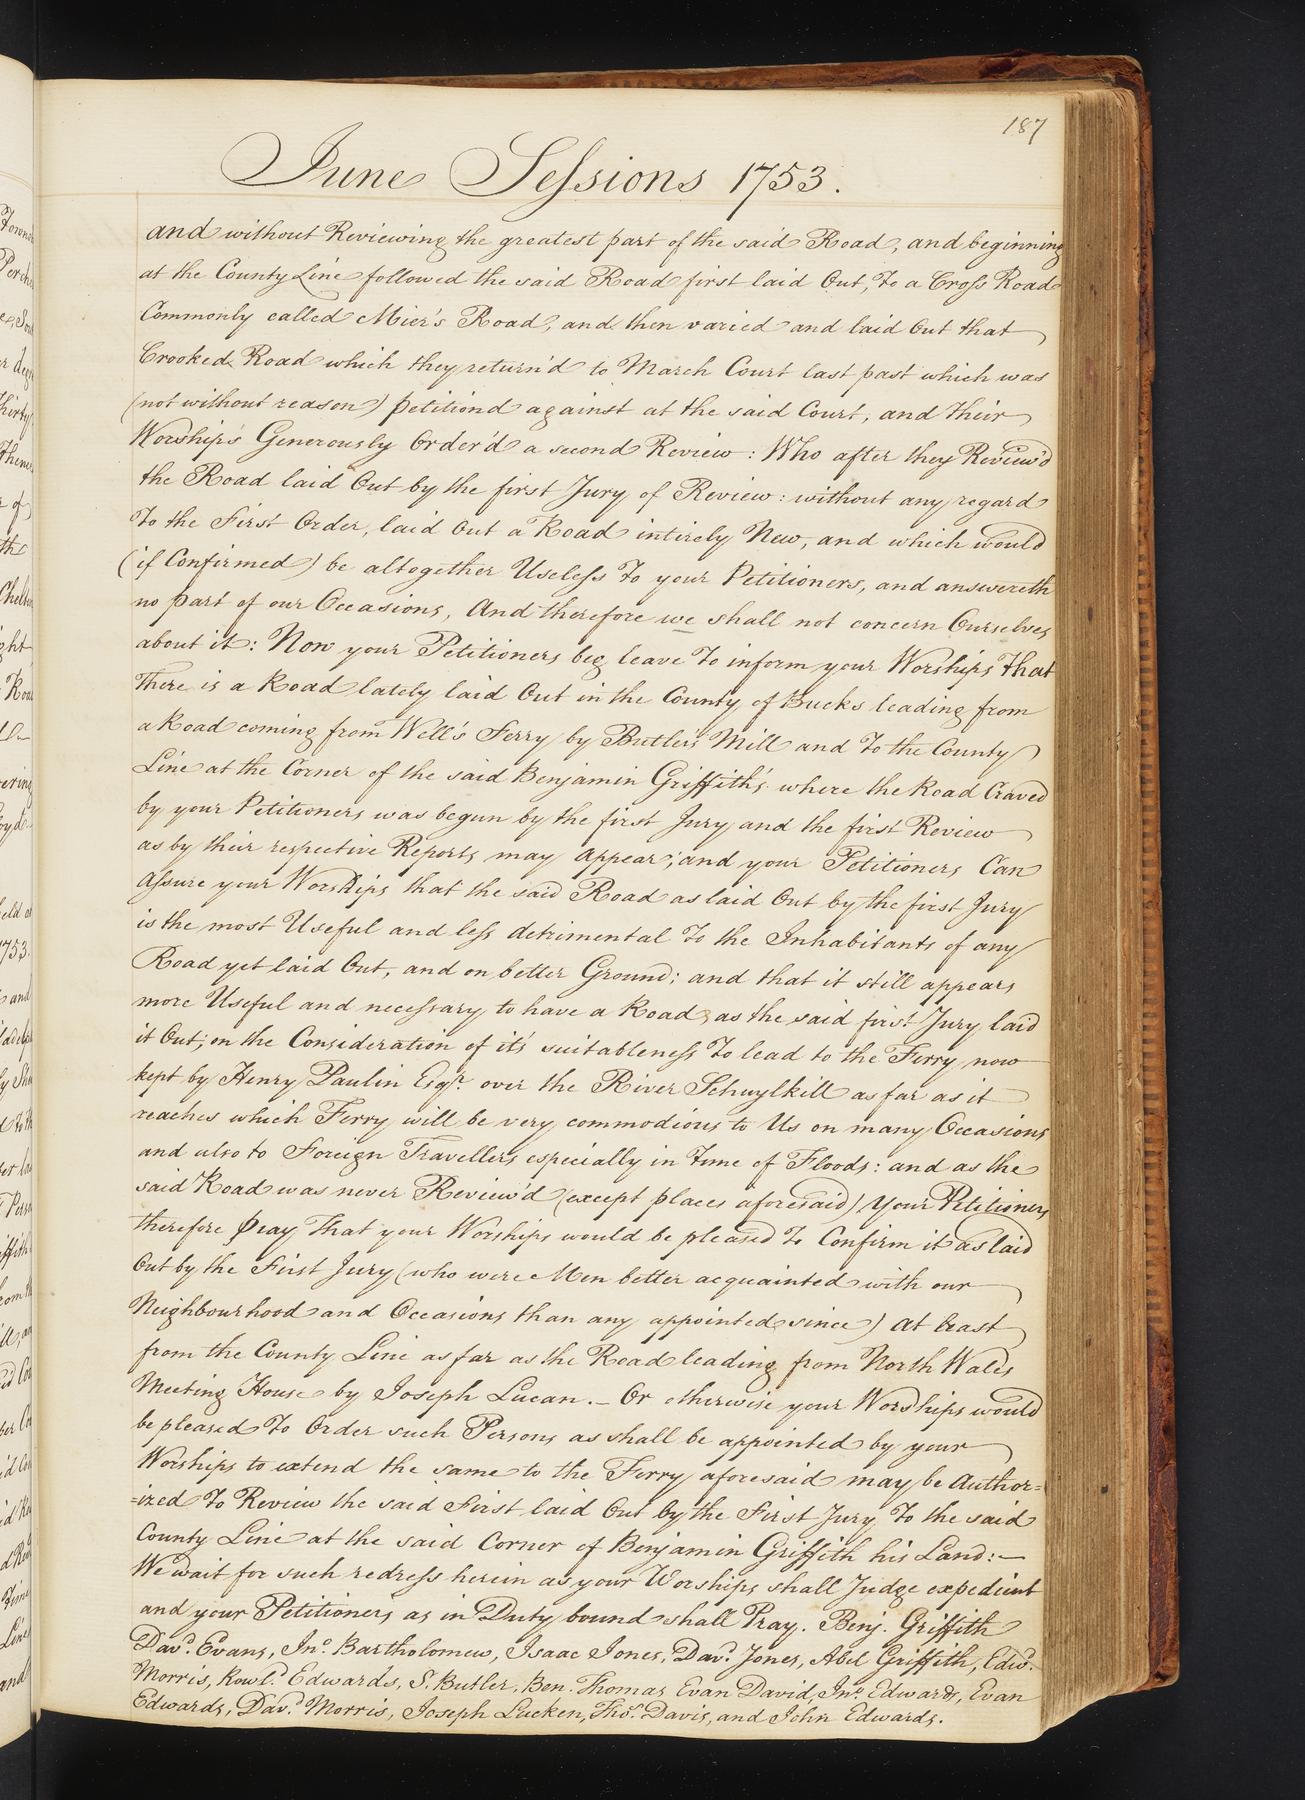 187
June Sessions 1753.
and without Reviewing the greatest part of the said Road, and beginning
at the County Line followed the said Road first laid Out, To a Cross Road
Commonly called Mier's Road, and then varied and laid Out that
Crooked Road which they return'd to March Court last past which was
(not without reason) petitiond against at the said Court, and their
Worship's Generously Order'd a second Review: Who after they Review'd
the Road laid Out by the first Jury of Review: without any regard
To the First Order, laid Out a Road intirely New, and which would
(if Confirmed) be altogether Useless To your Petitioners, and answereth
no part of our Occasions, And therefore we shall not concern Ourselves
about it: Now your Petitioners beg leave To inform your Worships That
There is a Road lately laid Out in the County of Bucks leading from
a Road coming from Well's Ferry by Butlers Mill and To the County
Line at the Corner of the said Benjamin Griffith's where the Road Craved
by your Petitioners was begun by the first Jury and the first Review
as by their respective Reports may appear; and your Petitioners Can
Assure your Worships that the said Road as laid Out by the first Jury
is the most Useful and less detrimental To the Inhabitants of any
Road yet laid Out, and on better Ground; and that it still appears
more Useful and necessary to have a Road as the said first Jury laid
it Out; on the Consideration of it's suitableness To lead to the Ferry now
kept by Henry Paulin Esqr. over the River Schuylkill as far as it
reaches which Ferry will be very commodious to Us on many Occasions
and also to Foreign Travellers especially in Time of Floods: and as the
said Road was never Review'd (except places aforesaid) Your Petitioners
therefore Pray That your Worships would be pleased To Confirm it as laid
Out by the First Jury (who were Men better acquainted with our
Neighbourhood and Occasions than any appointed since) at least
from the County Line as far as the Road leading from North Wales
Meeting House by Joseph Lucan._ Or otherwise your Worships would
be pleased To Order such Persons as shall be appointed by your
Worships to extend the same to the Ferry aforesaid may be Author=
=ized To Review the said First laid Out by the First Jury To the said
County Line at the said Corner of Benjamin Griffith his Land:—
We wait for such redress herein as your Worships shall Judge expedient
and your Petitioners as in Duty bound shall Pray. Benj. Griffith
Davd. Evans, Jno. Bartholomew, Isaac Jones, Davd. Jones, Abel Griffith, Edwd.
Morris, Rowld. Edwards, S. Butler, Ben. Thomas Evan David, Jno. Edwards, Evan
Edwards, Davd. Morris, Joseph Lucken, Thos. Davis, and John Edwards.